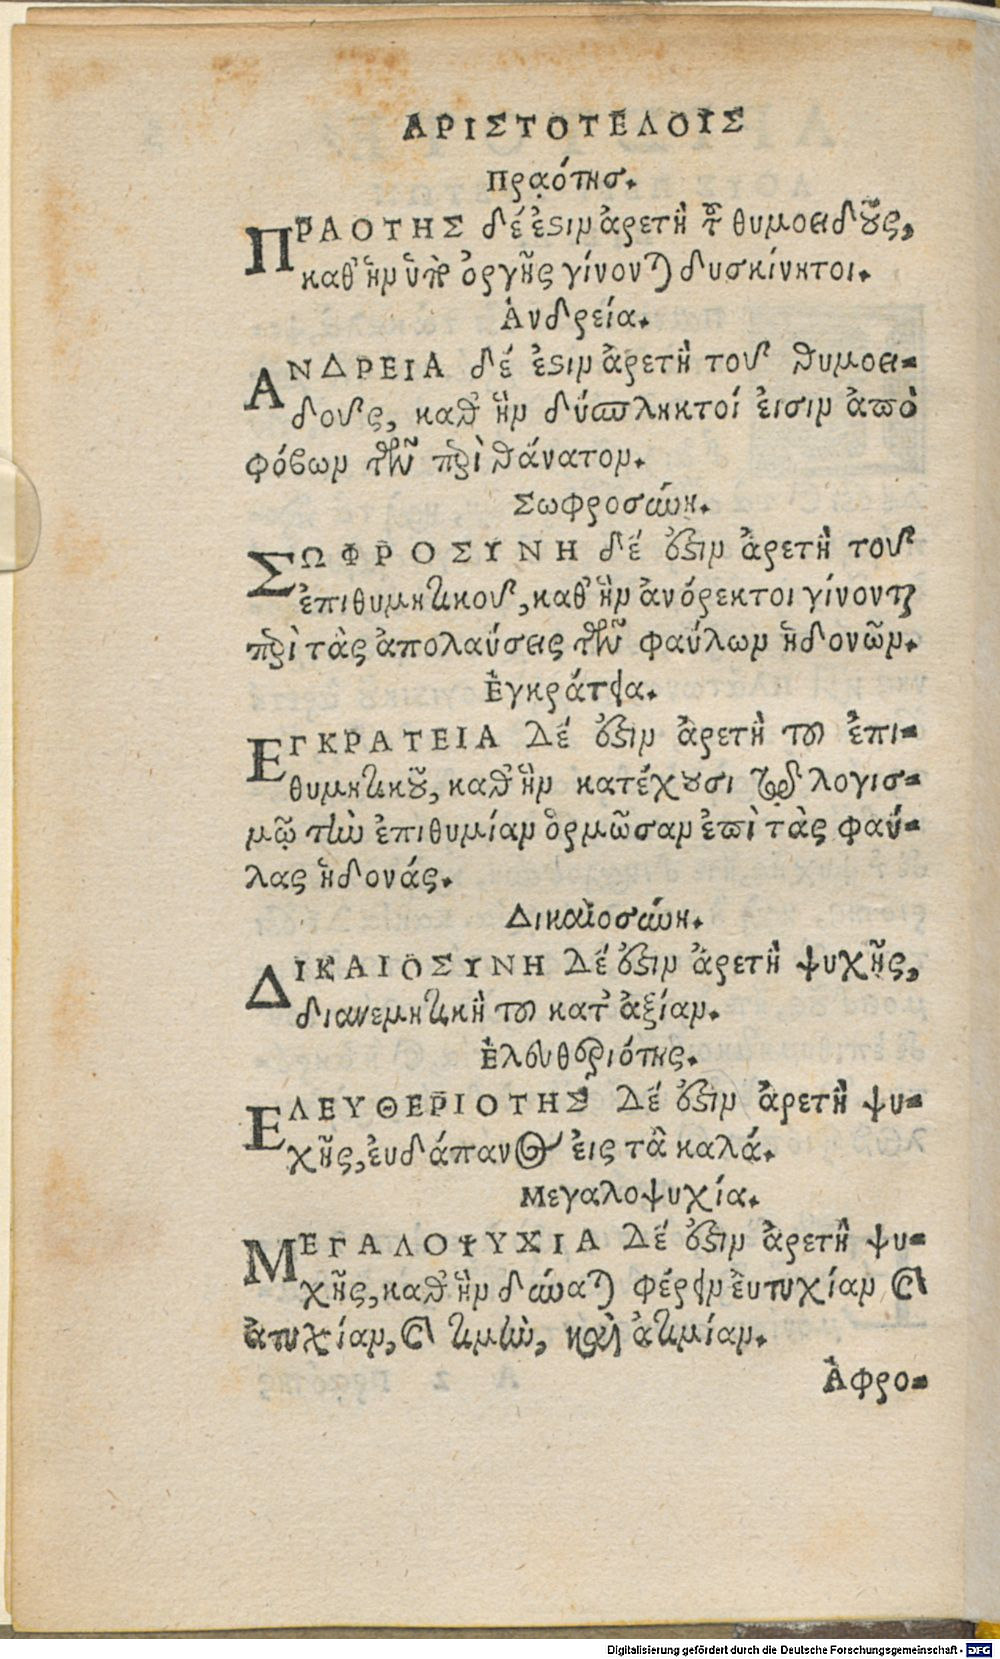 ΑΡΙΣΤΟΤΕΛΟΙΣ
Πρᾳότησ.
ΠΡΑΟΤΗΣ δέ ἐστιν ἀρετὴ τοῦ θυμοειδοῦς,
καθ᾽ ἣν ὑπὲρ ὀργῆς γίνονται δυσκίνητοι.
Ἀνδρεία.
ΑΝΔΡΕΙΑ δέ ἐστιν ἀρετὴ τοῦ θυμοει-
δοῦς, καθ᾽ ἣν δύσπληκτοί εἰσιν ἀπὸ
φόβων τῶν περὶ θάνατον.
Σωφροσύνη.
ΣΩΦΡΟΣΥΝΗ δέ ἐστιν ἀρετὴ τοῦ
ἐπιθυμητικοῦ, καθ᾽ ἣν ἀνόρεκτοι γίνονται
περὶ τὰς ἀπολαύσεις τῶν φαύλων ἡδονῶν.
Ἐγκράτεια.
ΕΓΚΡΑΤΕΙΑ Δέ ἐστιν ἀρετὴ τοῦ ἐπι-
θυμητικοῦ, καθ᾽ ἣν κατέχουσι τῷ λογισ-
μῷ τὴν ἐπιθυμίαν ὁρμῶσαν ἐπὶ τὰς φαύ-
λας ἡδονάς.
Δικαιοσύνη.
ΔΙΚΑΙΟΣΥΝΗ Δέ ἐστιν ἀρετὴ ψυχῆς,
διανεμητικὴ τοῦ κατ᾽ ἀξίαν.
Ἐλευθεριότης.
ΕΛΕΥΘΕΡΙΟΤΗΣ Δέ ἐστιν ἀρετὴ ψυ-
χῆς, εὐδάπανος εἰς τὰ καλά.
Μεγαλοψυχία.
ΜΕΓΑΛΟΨΥΧΙΑ Δέ ἐστιν ἀρετὴ ψυ-
χῆς, καθ᾽ ἣν δύναται φέρειν εὐτυχίαν καὶ
ἀτυχίαν, καὶ τιμὴν, καὶ ἀτιμίαν.
Ἀφρο-
Digitalisierung gefördert durch die Deutsche Forschungsgemeinschaft - DFG